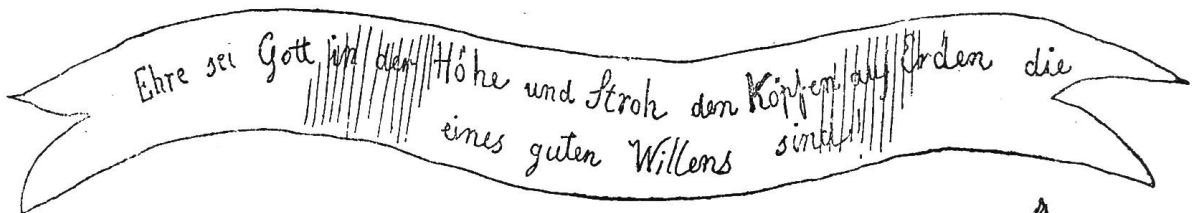 Ehre sei Gott in der Höhe und Stroh den Köpfen auf Erden die
eines guten Willens sind!